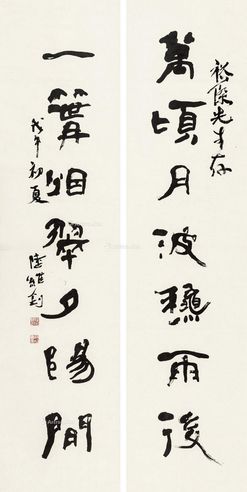 萬頃月波穐雨後
傑先生存
一篝烟翠夕陽間
戊午初夏
陸維釗